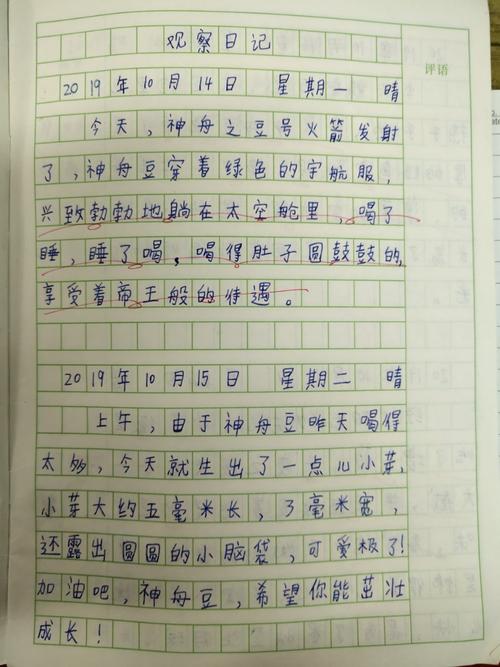 观察日记
评语
2019年10月14日 星期一 晴
今天，神舟之豆号火箭发射
了，神舟豆穿着绿色的宇航服，
兴致勃勃地躺在太空舱里，喝了
睡，睡了喝，喝得肚子圆鼓鼓的，
享受着帝王般的待遇。
2019年10月15日 星期二 晴
上午，由于神舟豆昨天喝得
太多，今天就生出了一点儿小芽，
小芽大约五毫米长，3毫米宽，
还露出圆圆的小脑袋，可爱极了！
加油吧，神舟豆，希望你能茁壮
成长！